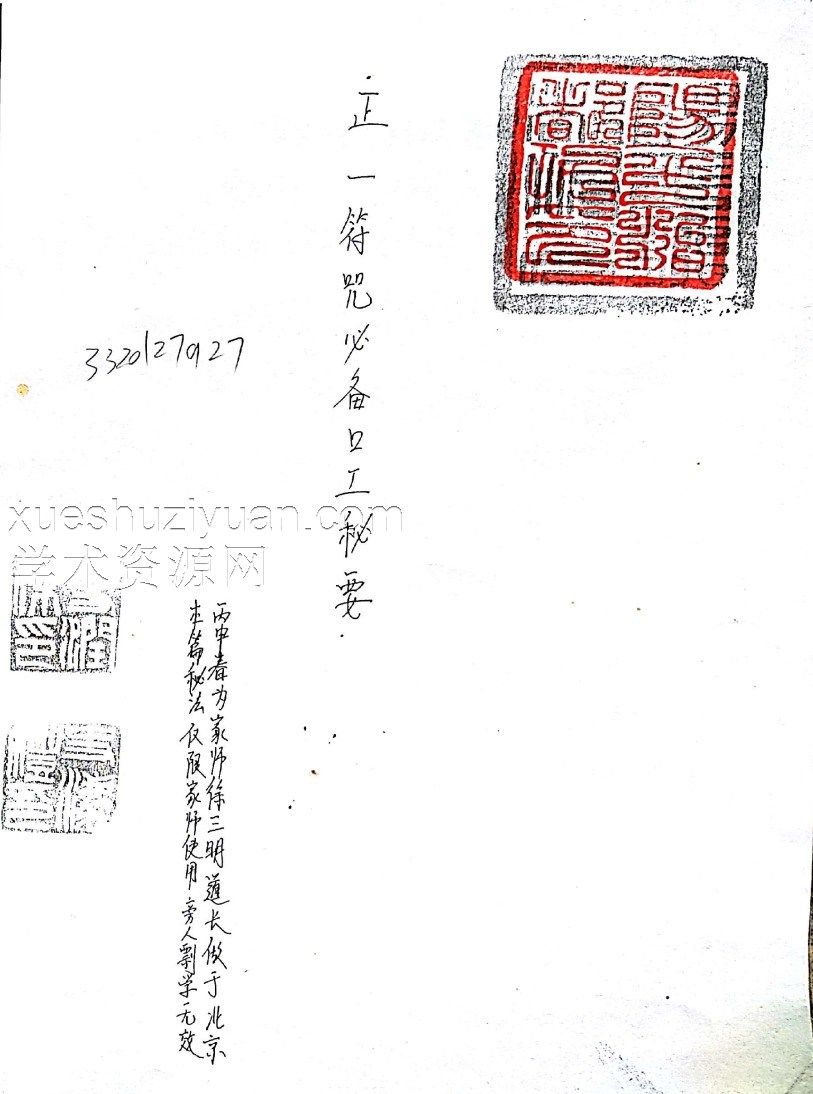 正一符咒必备口工秘要
丙申春为家师徐三明道长做于北京
本篇秘法仅限家师使用旁人剽学无效
3320127927
xueshuziyuan.com
学术资源网